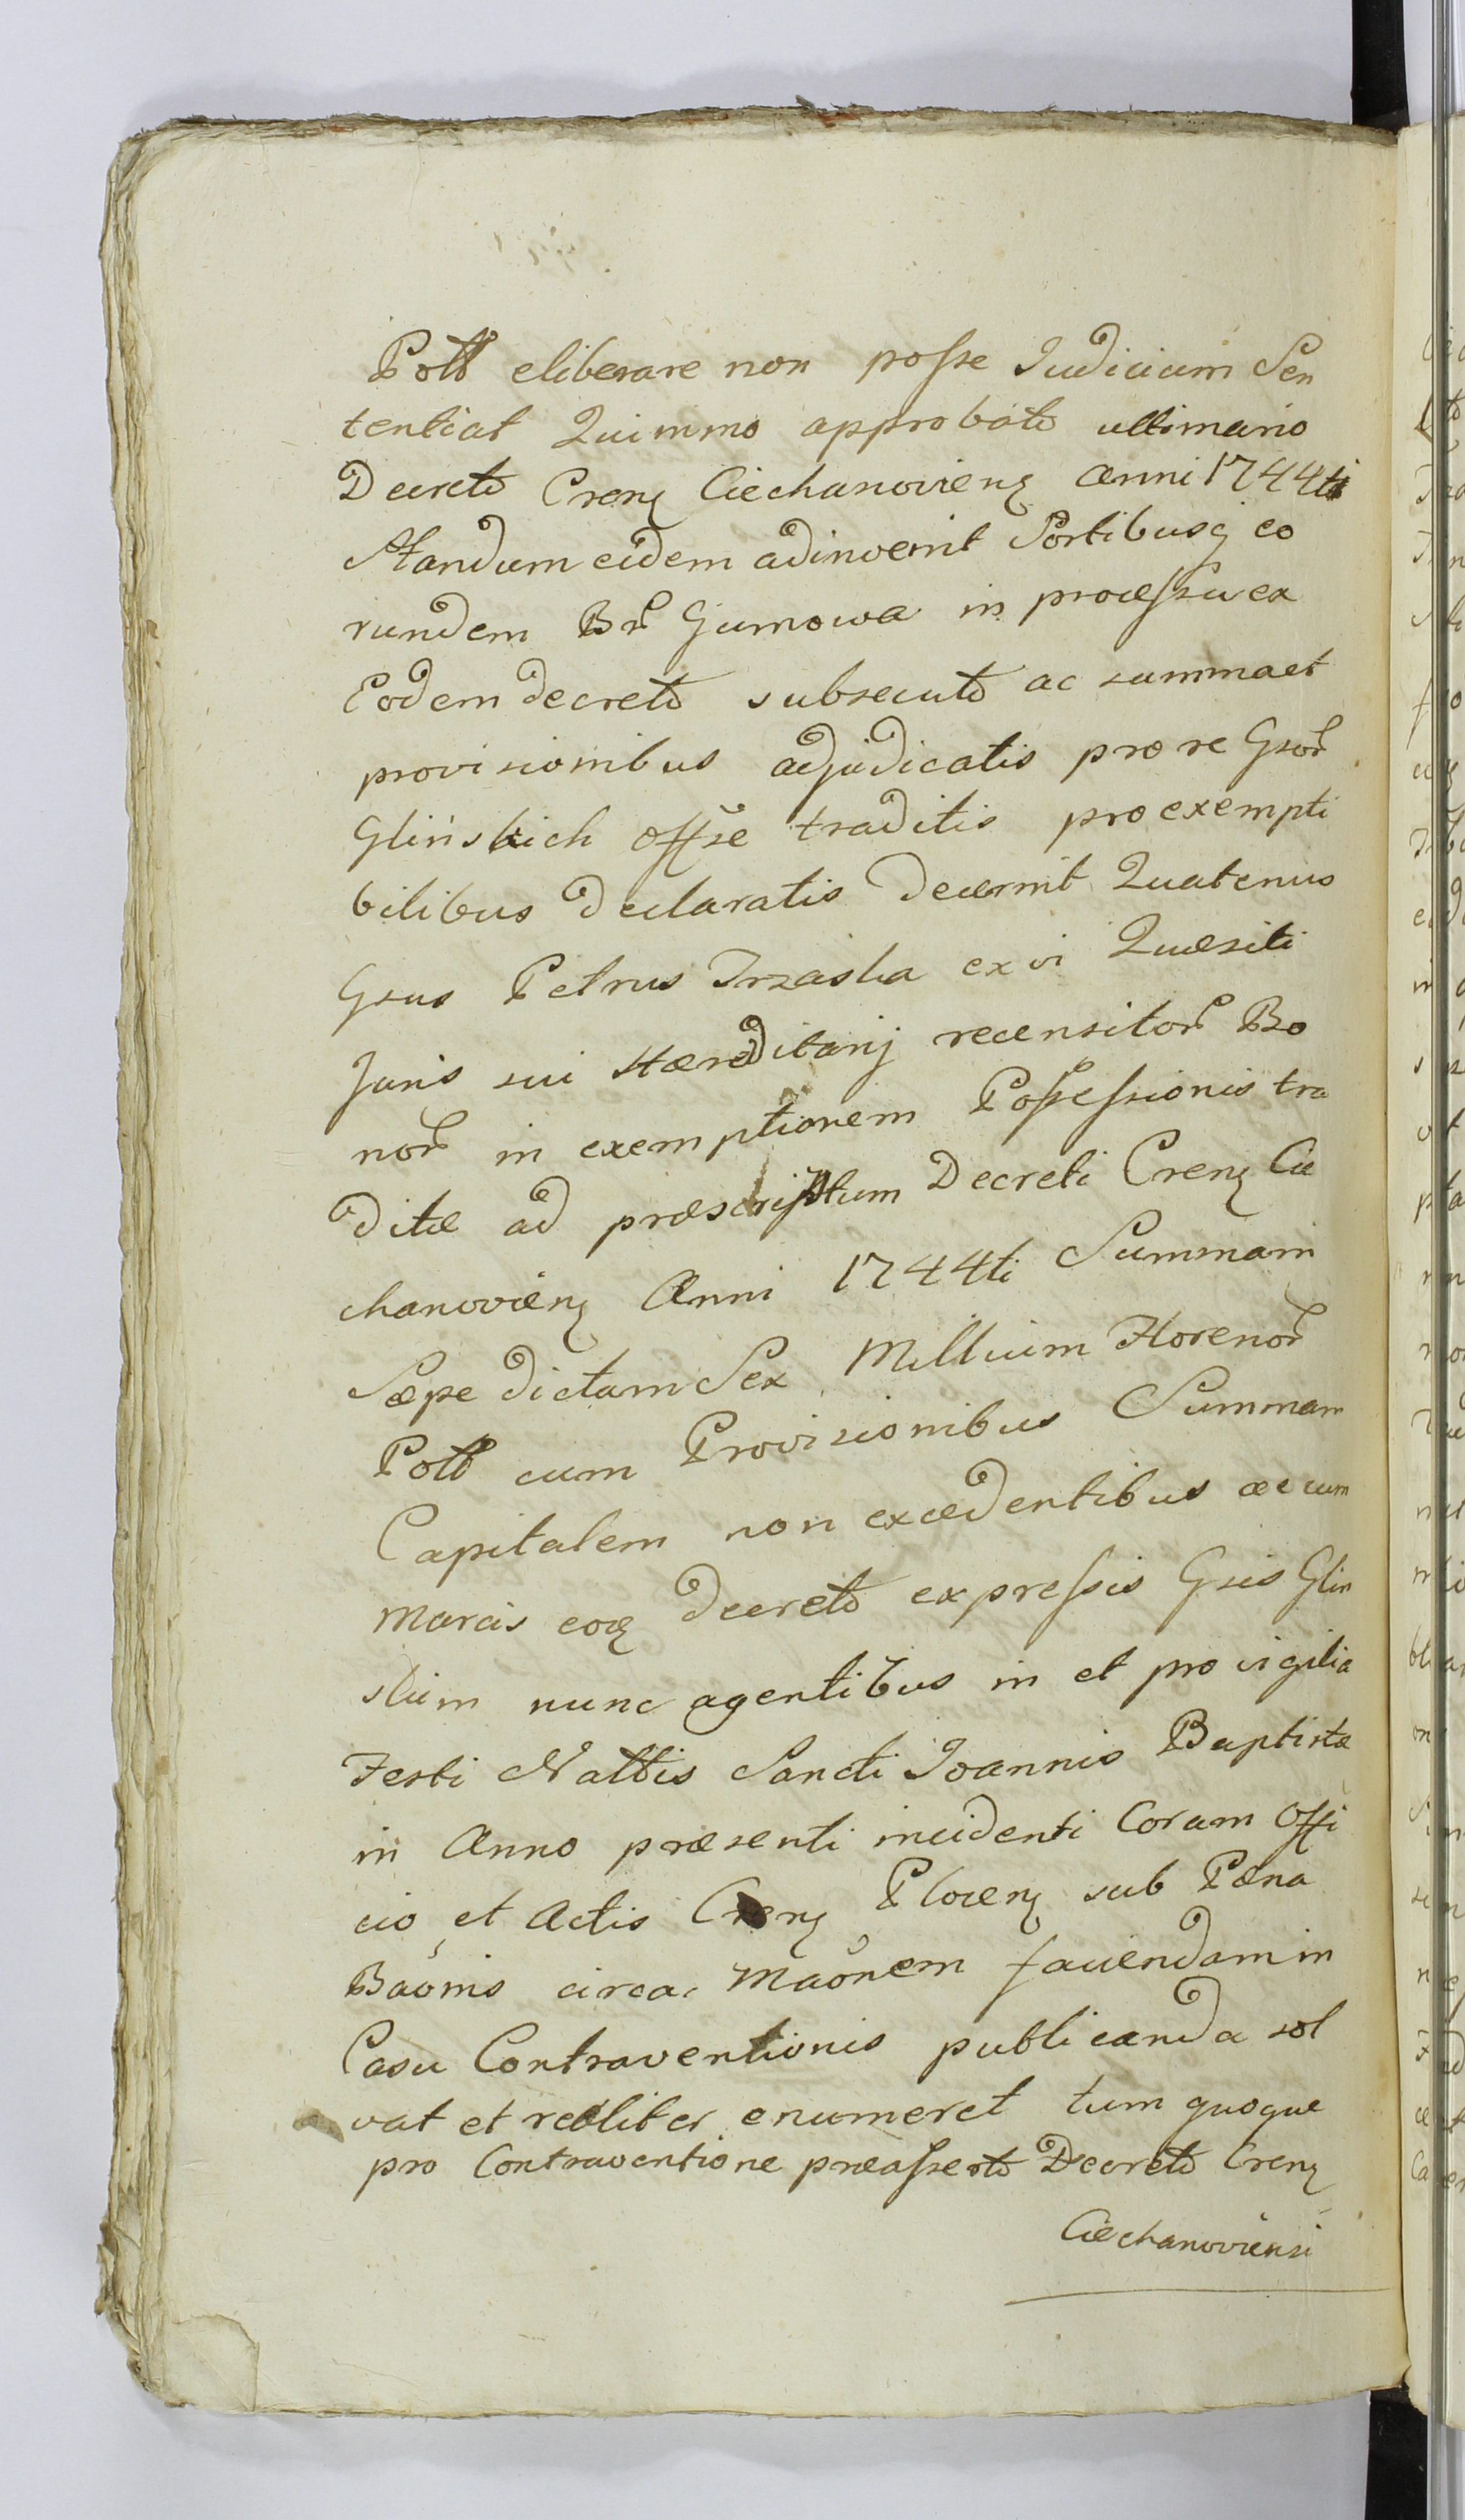 Poll eliberare non posse Judicium Sen
tentiat Quimmo approbato ultimario
Decreto Crenz Ciechanovienz Anni 1744ti
Standum eidem adinvenit Sortibusq eo
rundem Br Gumowa in processu ex
Eodem decreto subsecuto ac summa et
provisionibus adjudicatis pro re Gsor
Glinskich Offse traditis pro exempti
bilibus declaratis decernit Quatenus
Gsus Petrus Trzaska ex vi Quæsiti
Juris sui Hæreditarij recensitor Bo
nor in exemptionem Possessionis tra
ditæ ad præscriptum Decreti Crenz Cie
chanovienz Anni 1744ti Summam
Sæpe dictam Sex Millium Florenor
Poll cum Provisionibus Summam
Capitalem non excedentibus ac cum
Marcis eoq decreto expressis Gsis Glin
skim nunc agentibus in et pro vigilia
Festi Nattis Sancti Joannis Baptistæ
in Anno præsenti incidenti Coram Offi
cio et Actis Crenz Plocenz sub Pæna
Baõnis circa Maõnem faciendam in
Casu Contraventionis publicanda sol
vat et realiter enumeret tum quoque
pro Contraventione præasserto Decreto Crenz
Ciechanoviensi